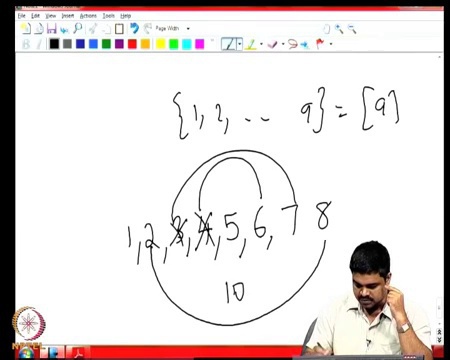 File Edit View Insert Actions Tools Help
Page Width
{1, 2, .. 9} = [9]
1, 2, 3, 4, 5, 6, 7 8
10